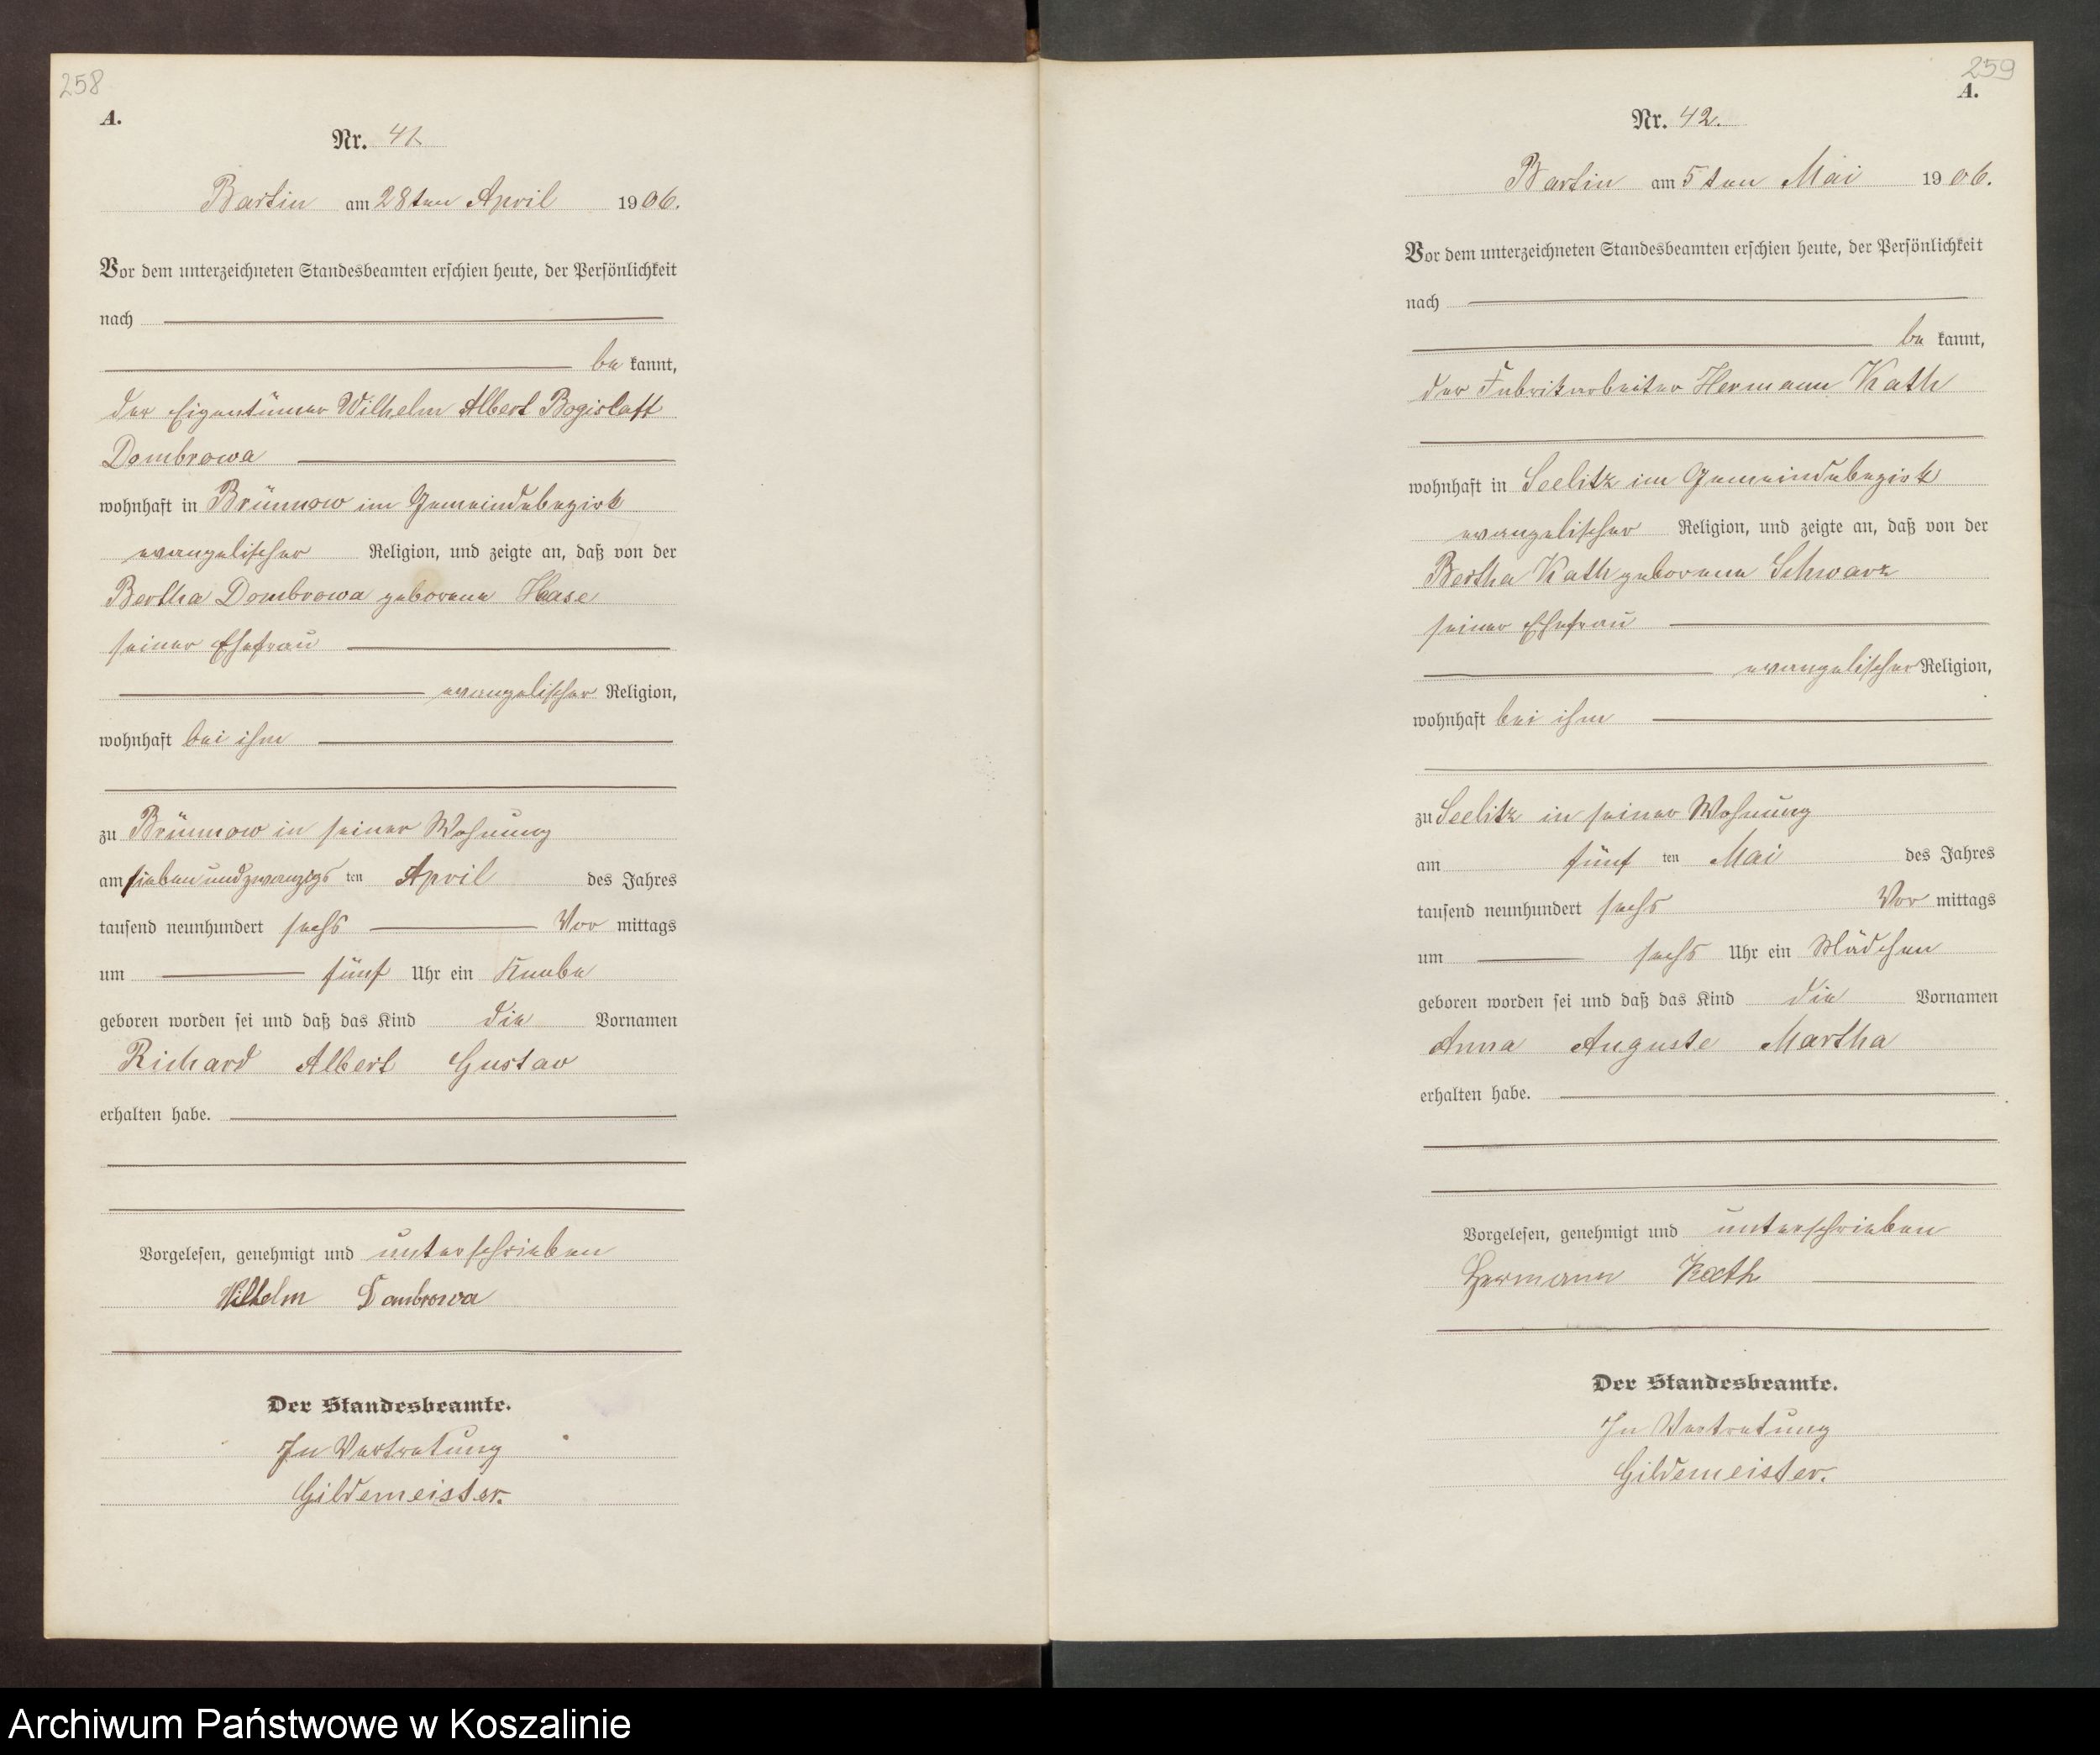 258
A.
Nr. 41.
Bartin am 28ten April 1906.
Vor dem unterzeichneten Standesbeamten erschien heute, der Persönlichkeit
nach
be kannt,
der Eigentümer Wilhelm Albert Bogislaff
Dombrowa
wohnhaft in Brünnow im Gemeindebezirk
evangelischer Religion, und zeigte an, daß von der
Bertha Dombrowa geborene Haase
seiner Ehefrau
evangelischer Religion,
wohnhaft bei ihm
zu Brünnow in seiner Wohnung
am siebenundzwanzigs ten April des Jahres
tausend neunhundert sechs Vor mittags
um fünf Uhr ein Knabe
geboren worden sei und daß das Kind die Vornamen
Richard Albert Gustav
erhalten habe.
Vorgelesen, genehmigt und unterschrieben
Wilhelm Dambrowa
Der Standesbeamte.
In Vertretung
Gildemeister.
259
A.
Nr. 42.
Bartin am 5ten Mai 1906.
Vor dem unterzeichneten Standesbeamten erschien heute, der Persönlichkeit
nach
be kannt,
der Fabrikarbeiter Hermann Kath
wohnhaft in Seelitz im Gemeindebezirk
evangelischer Religion, und zeigte an, daß von der
Bertha Kath geborene Schwarz
seiner Ehefrau
evangelischer Religion,
wohnhaft bei ihm
zu Seelitz in seiner Wohnung
am fünf ten Mai des Jahres
tausend neunhundert sechs Vor mittags
um sechs Uhr ein Mädchen
geboren worden sei und daß das Kind die Vornamen
Anna Auguste Martha
erhalten habe.
Vorgelesen, genehmigt und unterschrieben
Hermann Kath
Der Standesbeamte.
In Vertretung
Gildemeister.
Archiwum Państwowe w Koszalinie